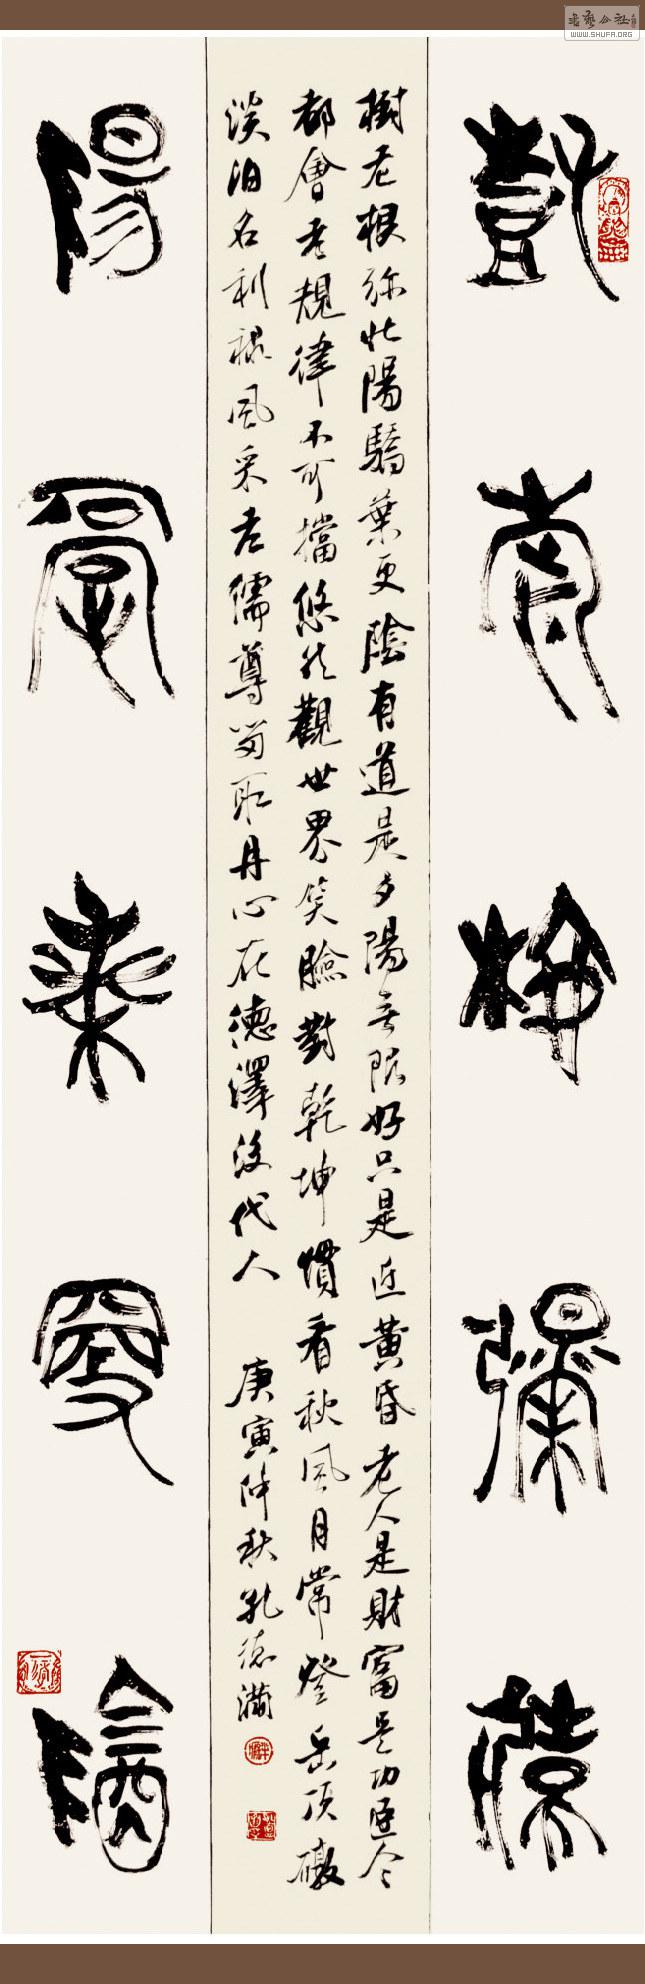 書藝公社
WWW.SHUFA.ORG
樹老根彌壯
樹老根弥壯陽驕葉更陰有道是夕陽无限好只是近黃昏老人是財富是功臣人々
都會老規律不可擋悠然觀世界笑臉對乾坤慣看秋風月常燈岳頂礅
淡泊名利祿風采老儒尊留取丹心在德澤後代人 庚寅仲秋孔德滿
陽驕葉更陰